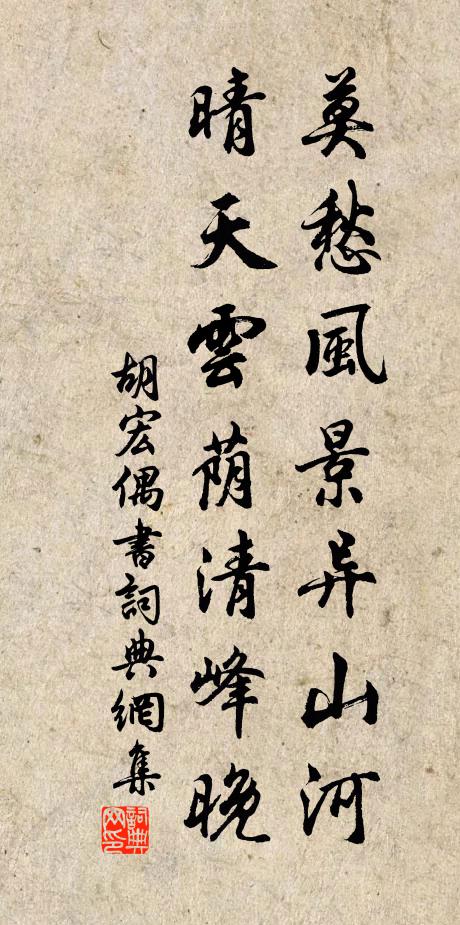 莫愁風景异山河
晴天雲荫清峰晚
胡宏偶書詞典網集
詞典网印